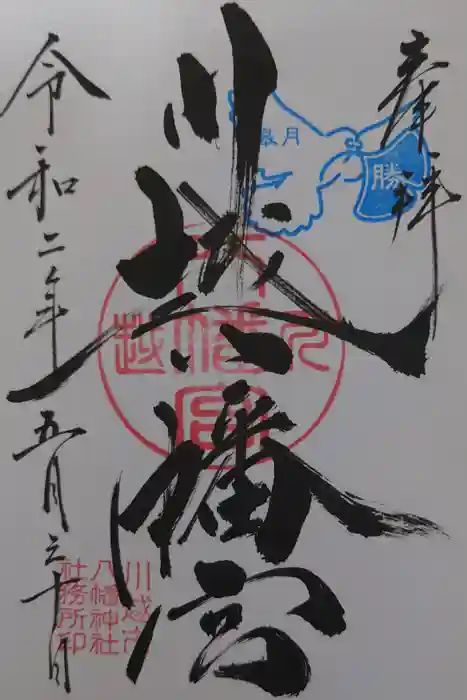 奉拝
川越八幡宮
令和二年五月三十一日
勝
川越市
八幡神社
社務所印